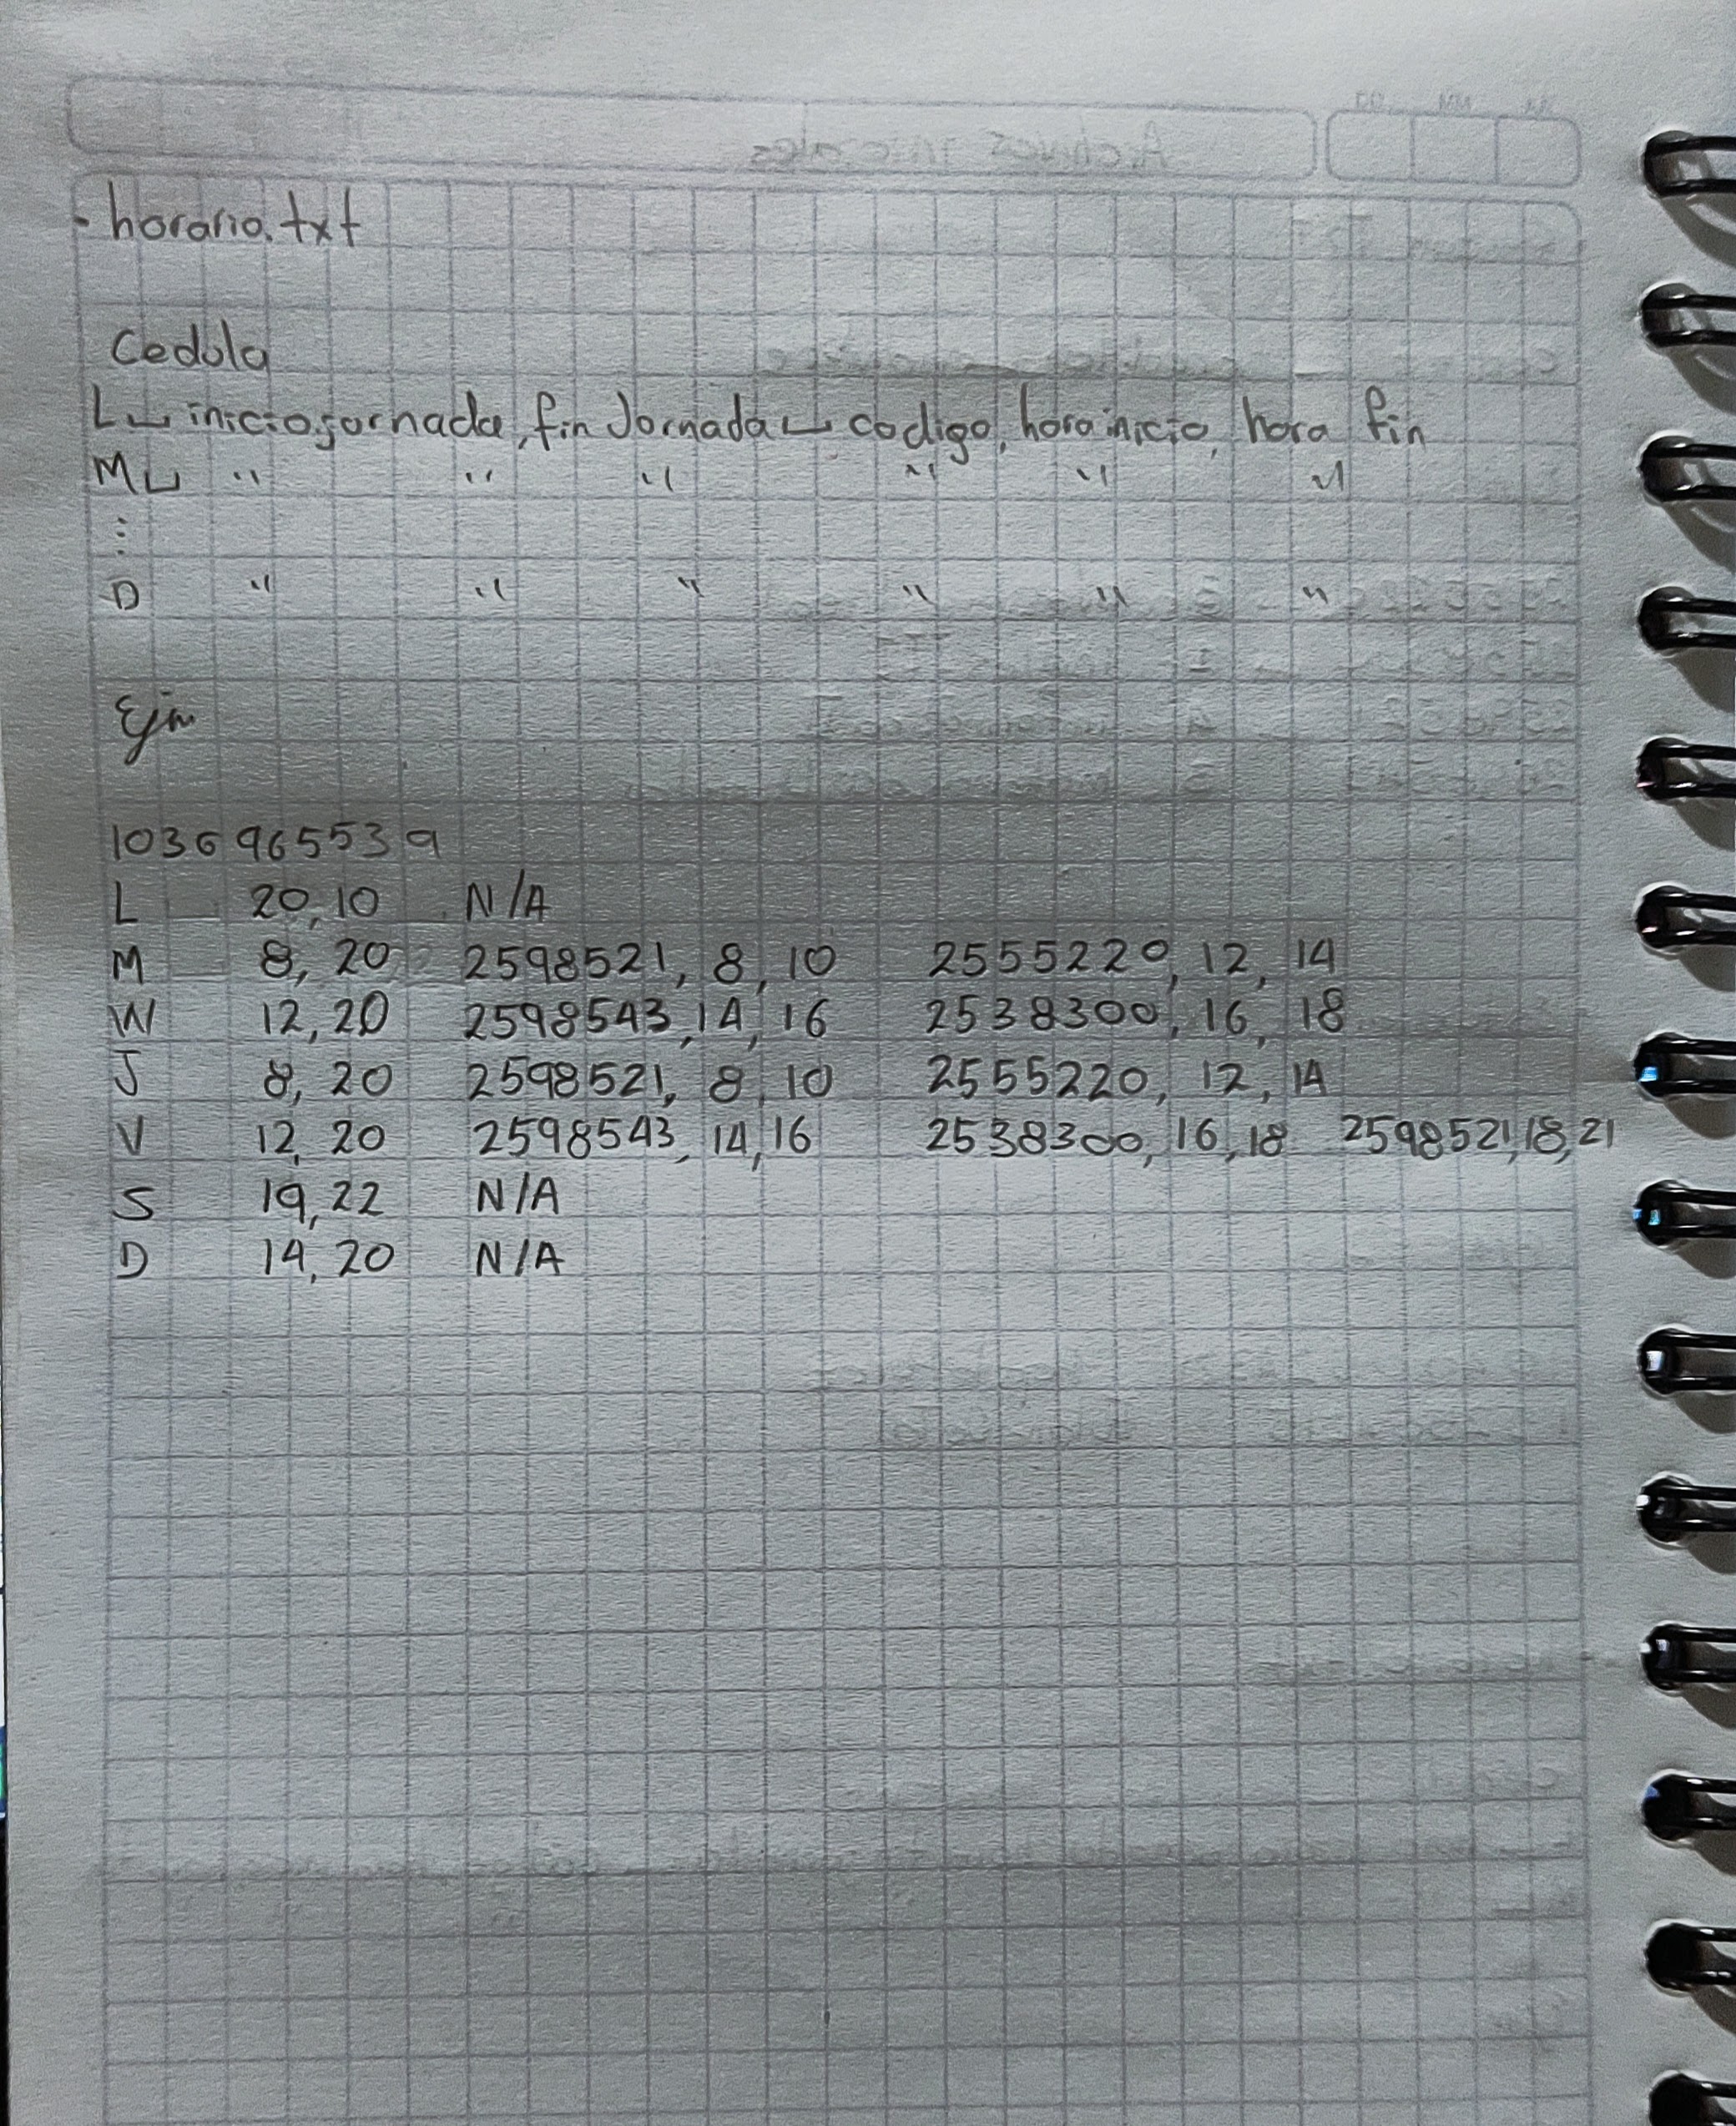 - horario.txt
Cedula
L␣ iniciojornada, fin Jornada␣ codigo, hora inicio, hora fin
M␣ " " " " " "
⋮
D " " " " " "
Ejm
1036965539
L 20,10 N/A
M 8, 20 2598521, 8, 10 2555220, 12, 14
W 12,20 2598543,14, 16 2538300, 16, 18
J 8, 20 2598521, 8, 10 2555220, 12, 14
V 12, 20 2598543, 14,16 2538300, 16,18 2598521,18,21
S 19,22 N/A
D 14, 20 N/A